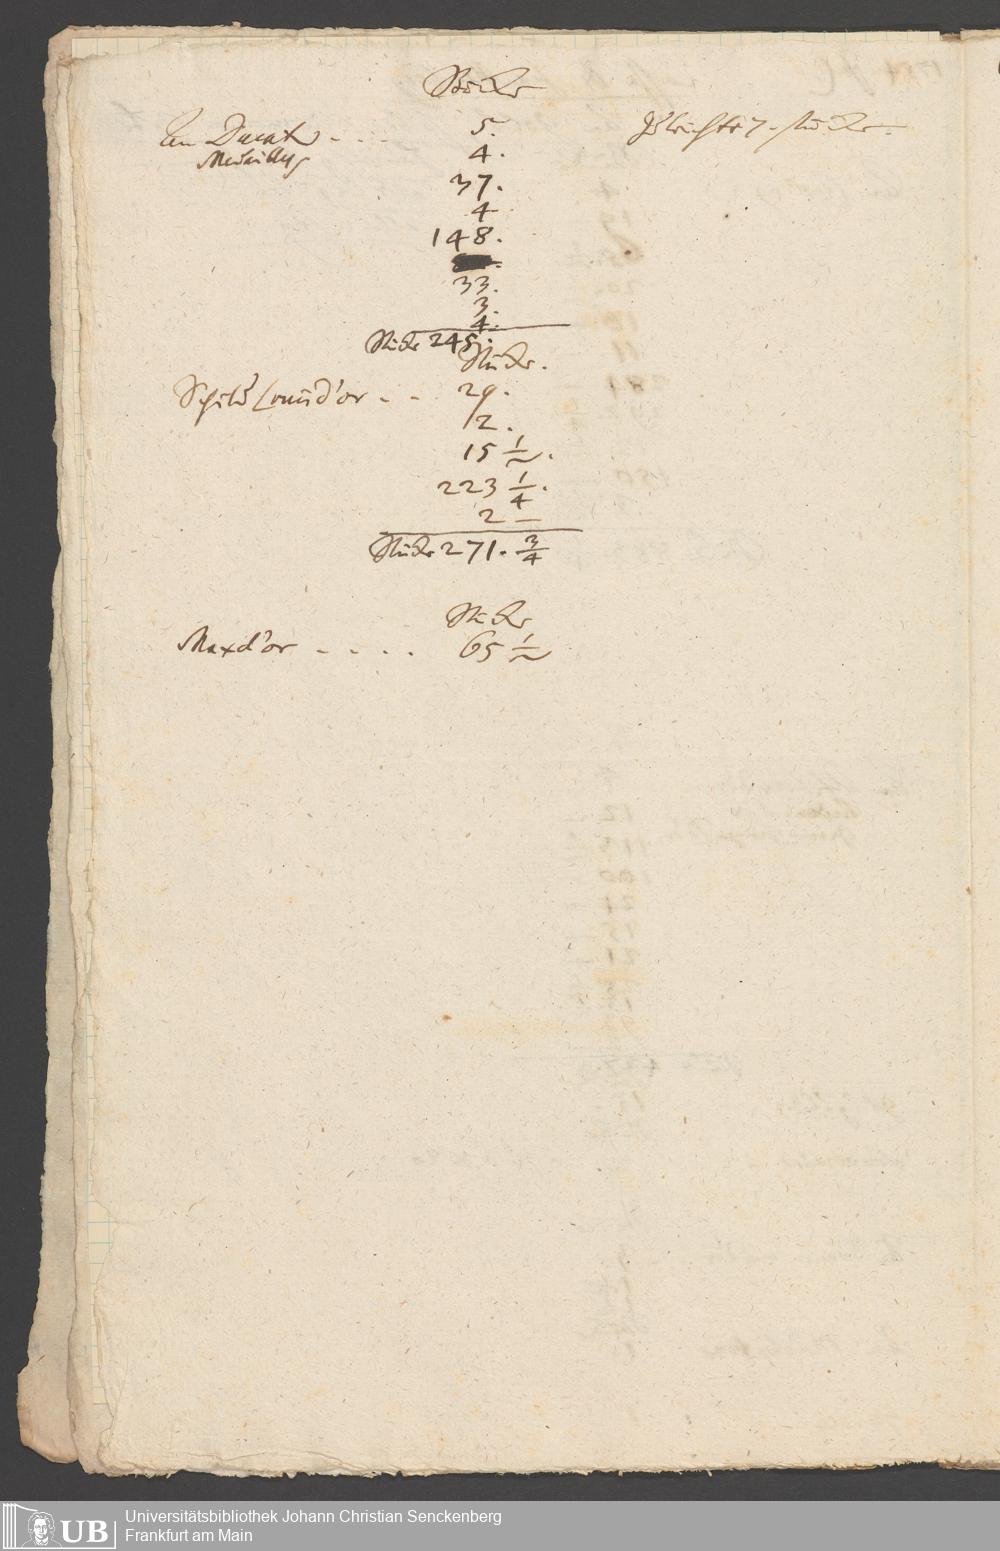 Stücke
An Ducaten - - - 5. 7. stücke.
Medailles 4.
37.
4
148.
33.
3.
4.
Stücke 245.
Stücke.
Schild Louisd'or - - 29.
2.
15 1/2.
223 1/4.
2 —
Stücke 271. 3/4
Stücke
Maxd'or - - - - 65 1/2
UB
Universitätsbibliothek Johann Christian Senckenberg
Frankfurt am Main